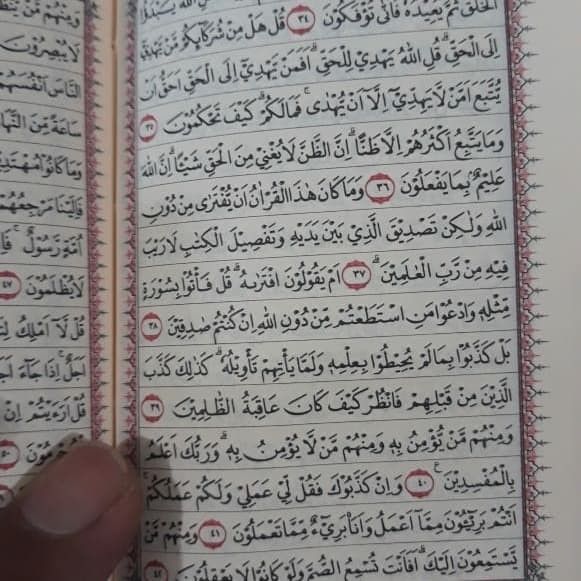 الْخَلْقَ ثُمَّ يُعِيْدُهٗ فَاَنّٰى تُؤْفَكُوْنَ ٣٤ قُلْ هَلْ مِنْ شُرَكَاۤىِٕكُمْ مَّنْ يَّهْدِيْٓ
اِلَى الْحَقِّۗ قُلِ اللّٰهُ يَهْدِيْ لِلْحَقِّۗ اَفَمَنْ يَّهْدِيْٓ اِلَى الْحَقِّ اَحَقُّ اَنْ
يُّتَّبَعَ اَمَّنْ لَّا يَهِدِّيْٓ اِلَّآ اَنْ يُّهْدٰىۚ فَمَا لَكُمْۗ كَيْفَ تَحْكُمُوْنَ ٣٥
وَمَا يَتَّبِعُ اَكْثَرُهُمْ اِلَّا ظَنًّاۗ اِنَّ الظَّنَّ لَا يُغْنِيْ مِنَ الْحَقِّ شَيْـًٔاۗ اِنَّ اللّٰهَ
عَلِيْمٌۢ بِمَا يَفْعَلُوْنَ ٣٦ وَمَا كَانَ هٰذَا الْقُرْاٰنُ اَنْ يُّفْتَرٰى مِنْ دُوْنِ
اللّٰهِ وَلٰكِنْ تَصْدِيْقَ الَّذِيْ بَيْنَ يَدَيْهِ وَتَفْصِيْلَ الْكِتٰبِ لَا رَيْبَ
فِيْهِ مِنْ رَّبِّ الْعٰلَمِيْنَۗ ٣٧ اَمْ يَقُوْلُوْنَ افْتَرٰىهُۗ قُلْ فَأْتُوْا بِسُوْرَةٍ
مِّثْلِهٖ وَادْعُوْا مَنِ اسْتَطَعْتُمْ مِّنْ دُوْنِ اللّٰهِ اِنْ كُنْتُمْ صٰدِقِيْنَ ٣٨
بَلْ كَذَّبُوْا بِمَا لَمْ يُحِيْطُوْا بِعِلْمِهٖ وَلَمَّا يَأْتِهِمْ تَأْوِيْلُهٗۗ كَذٰلِكَ كَذَّبَ
الَّذِيْنَ مِنْ قَبْلِهِمْ فَانْظُرْ كَيْفَ كَانَ عَاقِبَةُ الظّٰلِمِيْنَ ٣٩
وَمِنْهُمْ مَّنْ يُّؤْمِنُ بِهٖ وَمِنْهُمْ مَّنْ لَّا يُؤْمِنُ بِهٖۗ وَرَبُّكَ اَعْلَمُ
بِالْمُفْسِدِيْنَ ࣖ ٤٠ وَاِنْ كَذَّبُوْكَ فَقُلْ لِّيْ عَمَلِيْ وَلَكُمْ عَمَلُكُمْۚ
اَنْتُمْ بَرِيْۤـُٔوْنَ مِمَّآ اَعْمَلُ وَاَنَا۠ بَرِيْۤءٌ مِّمَّا تَعْمَلُوْنَ ٤١ وَمِنْهُمْ مَّنْ
يَّسْتَمِعُوْنَ اِلَيْكَۗ اَفَاَنْتَ تُسْمِعُ الصُّمَّ وَلَوْ كَانُوْا لَا يَعْقِلُوْنَ ٤٢
لَا يُبْصِرُوْنَ
النَّاسَ اَنْفُسَهُمْ
سَاعَةً مِّنَ النَّهَارِ
وَمَا كَانُوْا مُهْتَدِيْنَ
فَاِلَيْنَا مَرْجِعُهُمْ
اُمَّةٍ رَّسُوْلٌۚ
لَا يُظْلَمُوْنَ ٤٧
قُلْ لَّآ اَمْلِكُ
اَجَلٌۚ اِذَا جَاۤءَ
قُلْ اَرَءَيْتُمْ اِنْ